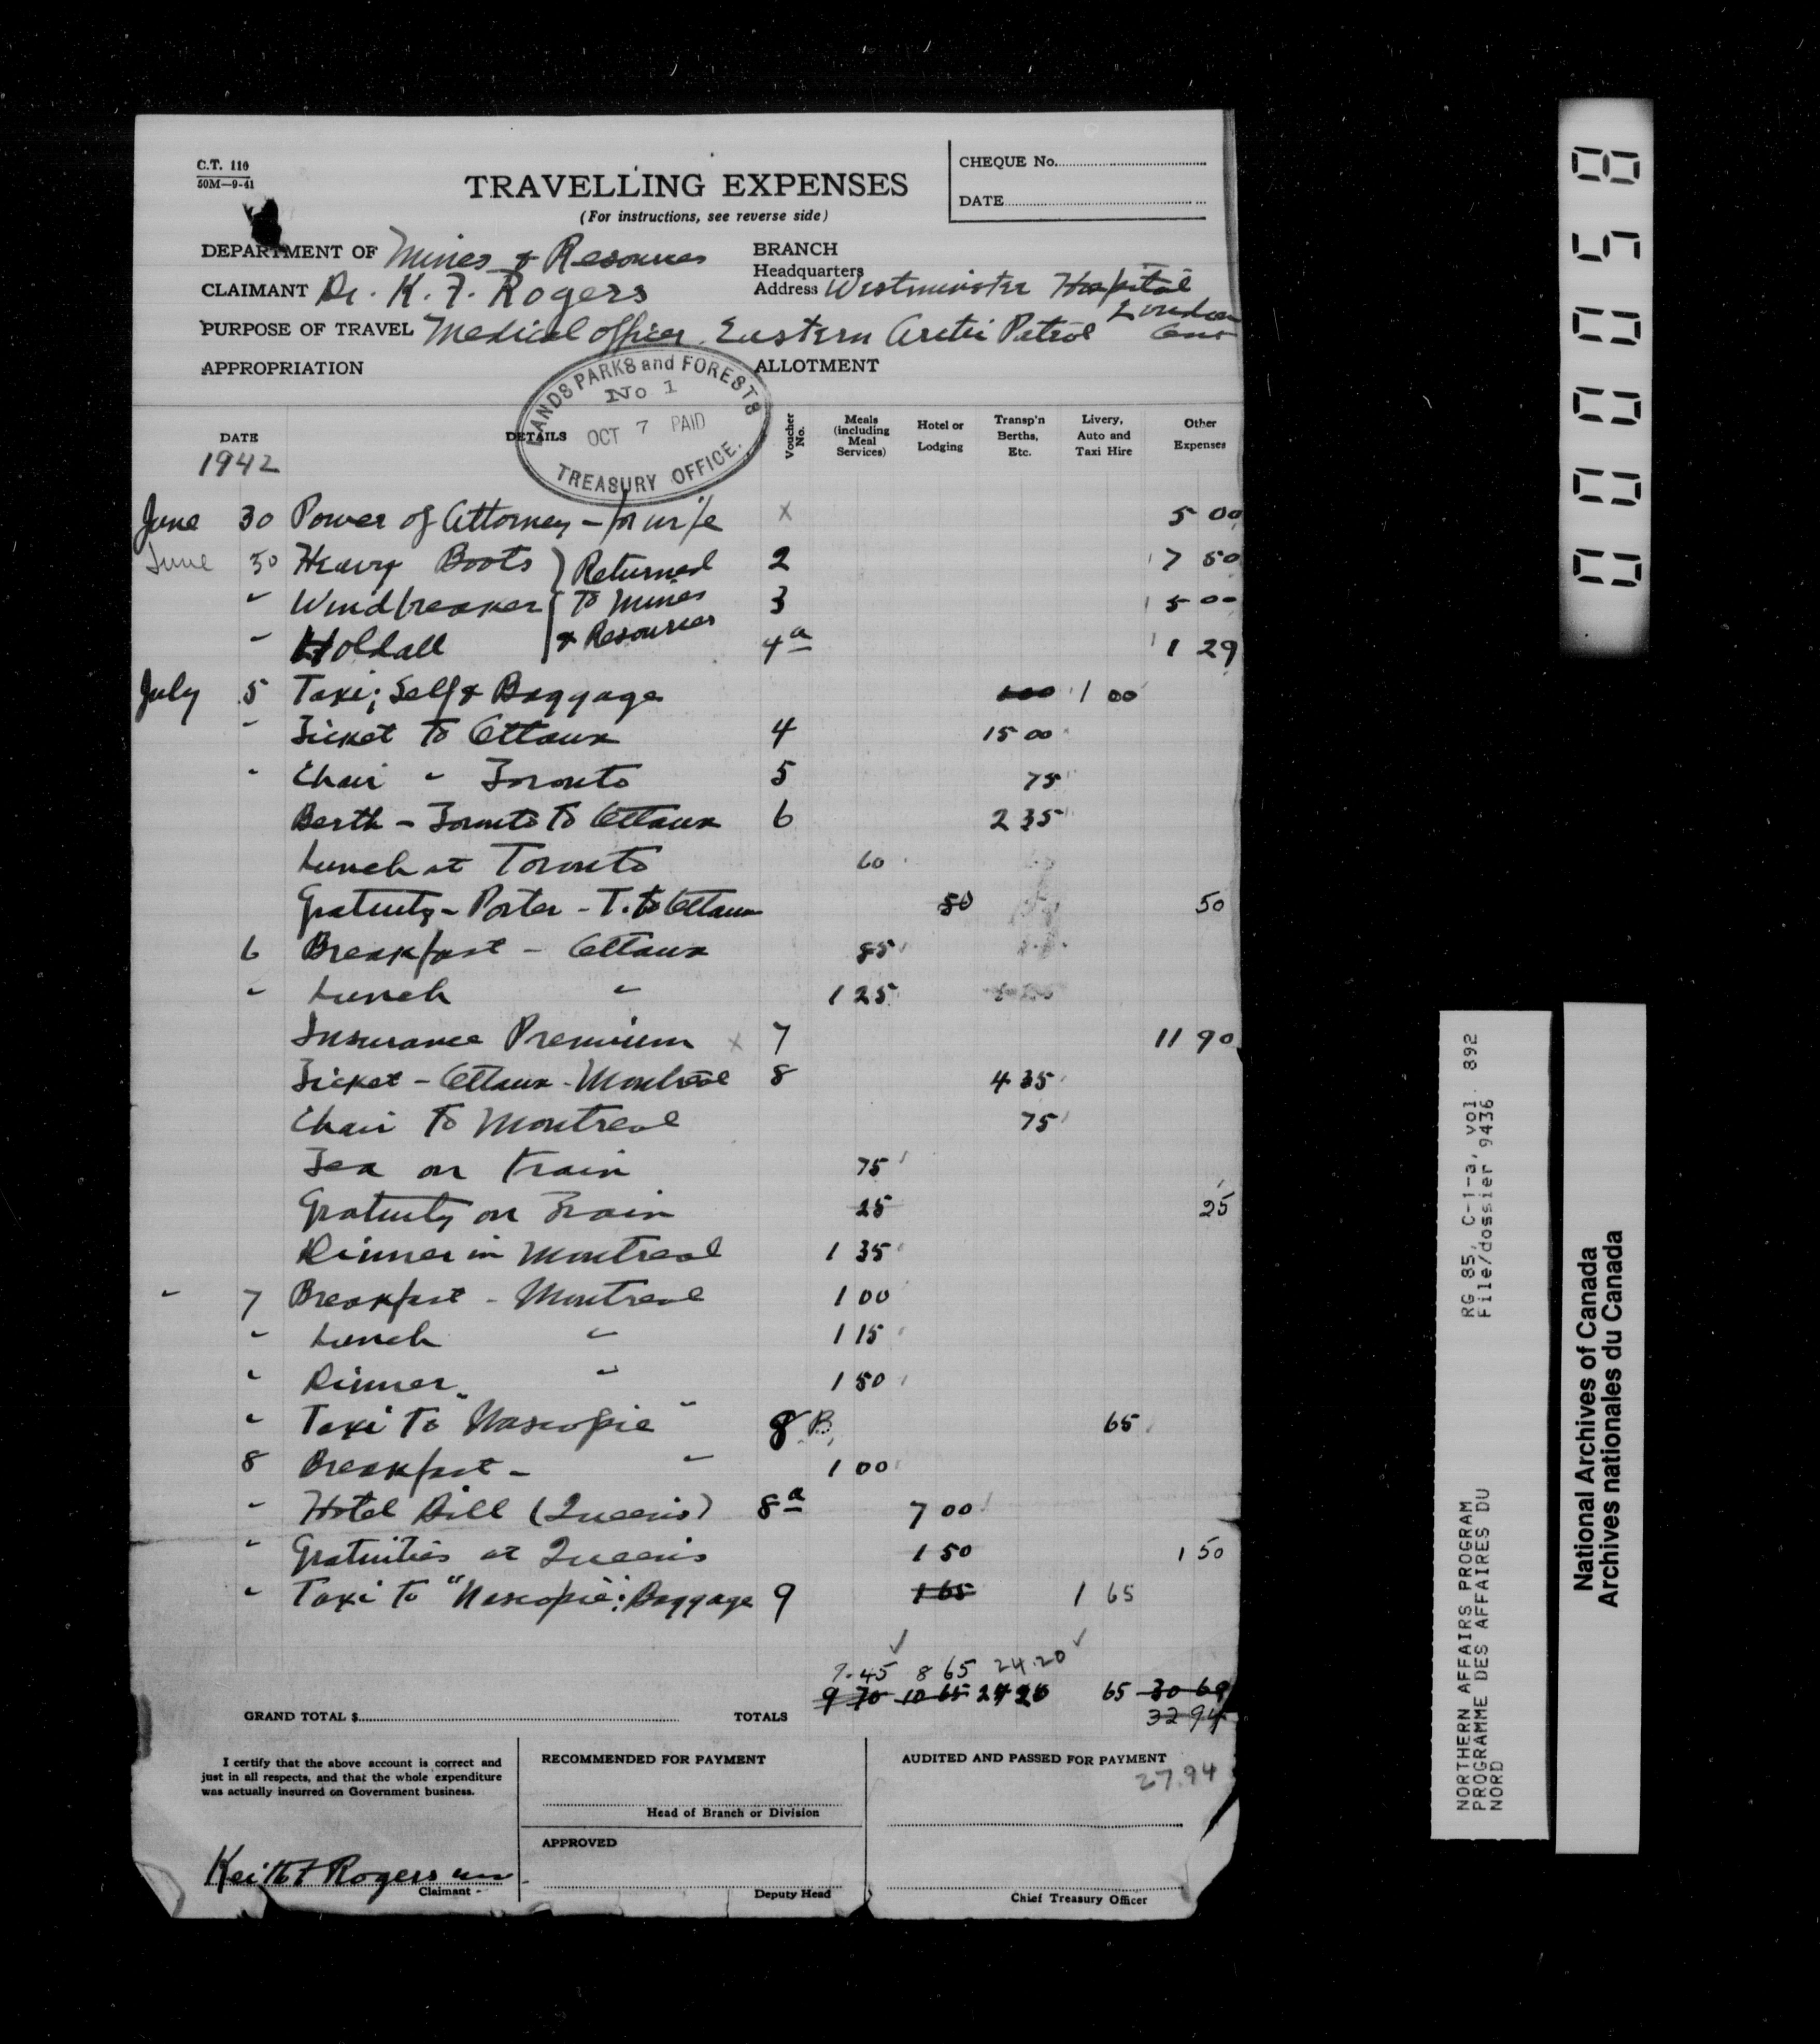 C.T. 110
50M—9-41
TRAVELLING EXPENSES
(For instructions, see reverse side)
CHEQUE No.
DATE
DEPARTMENT OF Mines & Resources
BRANCH
CLAIMANT Dr. K. F. Rogers
Headquarters Address Westminster Hospital London Ont
PURPOSE OF TRAVEL Medical Officer Eastern Arctic Patrol
APPROPRIATION
ALLOTMENT
LANDS PARKS and FORESTS
No 1
OCT 7 PAID
TREASURY OFFICE.
DATE DETAILS Voucher No. Meals (including Meal Services) Hotel or Lodging Transp'n Berths, Etc. Livery, Auto and Taxi Hire Other Expenses
1942
June 30 Power of Attorney - for wife x 5 00
June 30 Heavy Boots } Returned 2 7 50
" Windbreaker To Mines 3 5 00
" Holdall & Resources 4a 1 29
July 5 Taxi; Self & Baggage 1 00 1 00
" Ticket to Ottawa 4 15 00
" Chair " Toronto 5 75
Berth - Toronto to Ottawa 6 2 35
Lunch at Toronto 60
Gratuity - Porter - T. to Ottawa 50 50
6 Breakfast - Ottawa 85
" Lunch " 1 25
Insurance Premium x 7 11 90
Ticket - Ottawa - Montreal 8 4 35
Chair to Montreal 75
Tea on train 75
Gratuity on Train 25 25
Dinner in Montreal 1 35
" 7 Breakfast - Montreal 1 00
" Lunch " 1 15
" Dinner " 1 50
" Taxi to "Nascopie" 8 B 65
8 Breakfast - " 1 00
" Hotel Bill (Queens) 8a 7 00
" Gratuities at Queens 1 50 1 50
" Taxi to "Nascopie"; Baggage 9 1 65 1 65
9.45 8 65 24.20
9 70 10 65 24 20 65 30 69
GRAND TOTAL $ TOTALS 32 94
I certify that the above account is correct and
just in all respects, and that the whole expenditure
was actually incurred on Government business.
Keith F Rogers
Claimant
RECOMMENDED FOR PAYMENT
Head of Branch or Division
APPROVED
Deputy Head
AUDITED AND PASSED FOR PAYMENT
27.94
Chief Treasury Officer
000058
RG 85, C-1-a, vol. 892
File/dossier 9436
NORTHERN AFFAIRS PROGRAM
PROGRAMME DES AFFAIRES DU
NORD
National Archives of Canada
Archives nationales du Canada